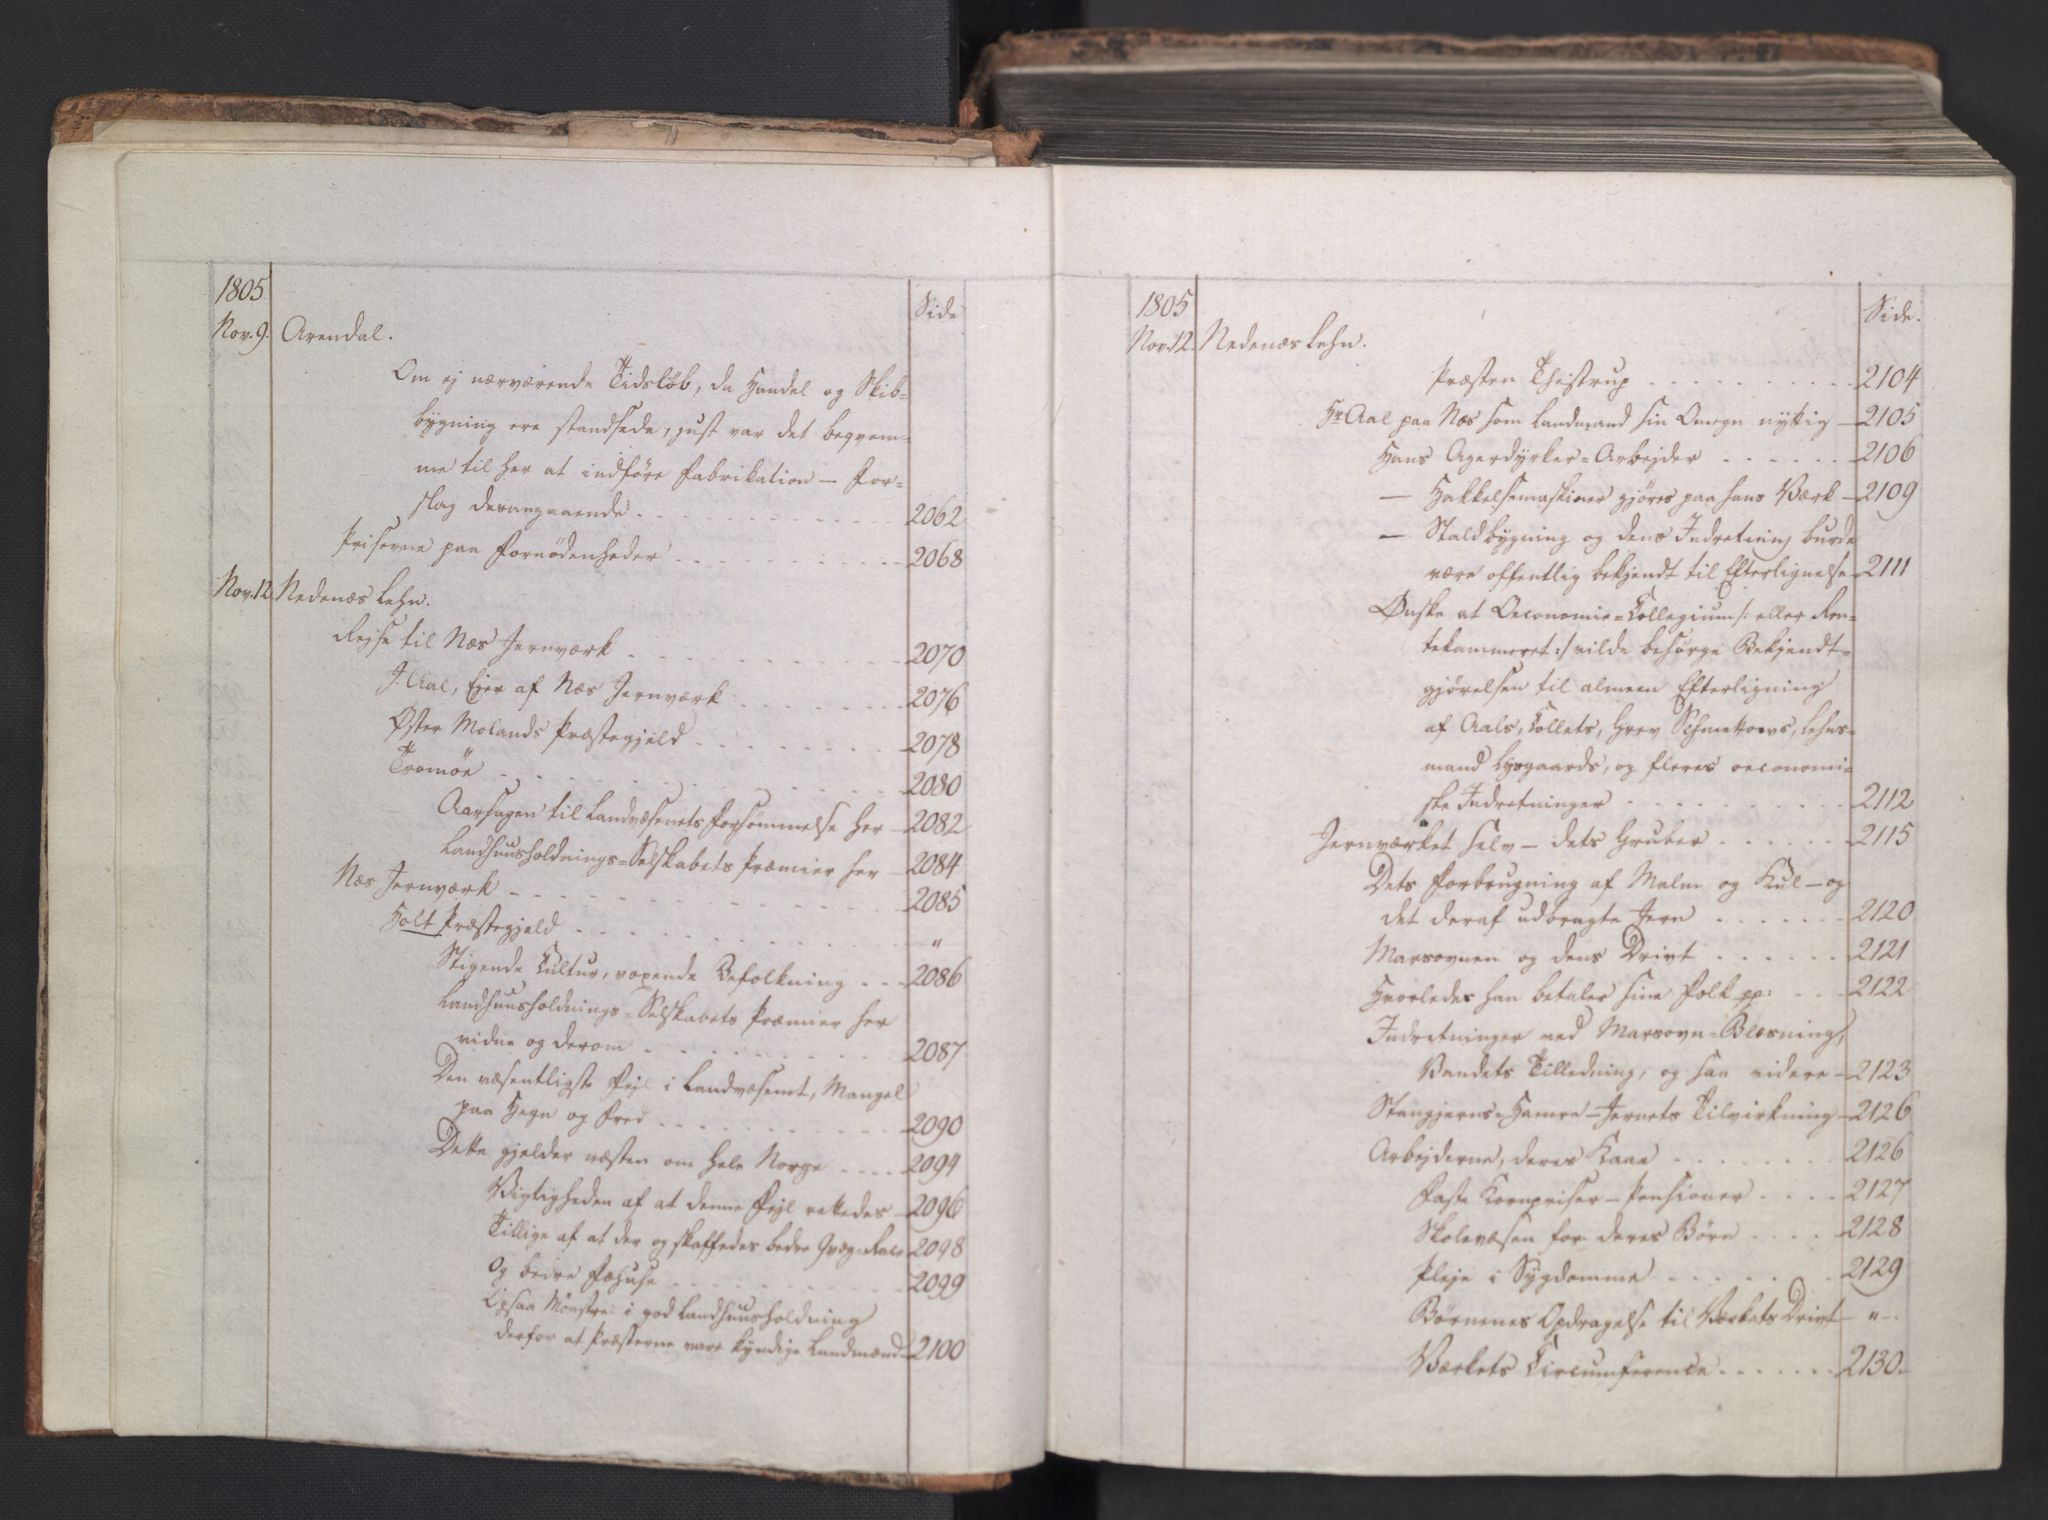 1805
Side
Nov. 9. Arendal.
Om ej nærværende Tidsløb, da Handel og Skib=
bygning ere standsede, just var det beqvem=
me til her at indføre Fabrikation – For=
slag desangaaende 2062
Priserne paa Fornødenheder 2068
Nov. 12 Nedenæs Lehn.
Rejse til Næs Jernværk 2070
J. Aal, Ejer af Næs Jernværk 2076
Øster Molands Præstegjeld 2078
Tromøe 2080
Aarsagen til Landvæsenets Forsømmelse her 2082
Landhuusholdnings=Selskabets Præmier her 2084
Næs Jernværk 2085
Holt Præstegjeld "
Stigende Cultur, voxende Befolkning 2086
Landhuusholdnings=Selskabets Præmier her
vidne og derom 2087
Den væsentligste Fejl i Landvæsenet, Mangel
paa Hegn og Fred 2090
Dette gjelder næsten om hele Norge 2094
Vigtigheden af at denne Fejl rettedes 2096
Tillige af at der og skaffedes bedre Qvæg=Race 2098
Og bedre Fæhuse 2099
Ligsaa Mønstre i god Landhuusholdning
derfor at Præsterne vare kyndige Landmænd 2100
1805
Side.
Nov. 12. Nedenæs Lehn.
Præsten Theistrup 2104
Hr Aal paa Næs som Landmand sin Omegn nyttig 2105
Hans Agerdyrker=Arbejder 2106
— Hakkelsemaskiner gjöres paa hans Værk 2109
— Staldbygning og dens Indretning burde
være offentlig bekjendt til Efterlignelse 2111
Ønske at Oeconomie=Collegium /: eller Ren=
tekammeret :/ vilde besörge Bekjendt=
gjörelsen til almeen Efterligning
af Aals, Collets, Grev Schmettows, Lehns=
mand Lysgaards, og fleres oeconomi=
ske Indretninger 2112
Jernværket selv – dets Gruber 2115
Dets Forbrugning af Malm og Kul – og
det deraf udbragte Jern 2120
Marsovnen og dens Drivt 2121
Hvorledes han betaler sine Folk pp: 2122
Indretninger ved Marsovn=Blæsning,
Vandets Tilledning, og saa videre 2123
Stangjerns=Hamre – Jernets Tilvirkning 2126
Arbejderne, deres Kaar 2126
Faste Kornpriser – Pensioner 2127
Skolevæsen for deres Börn 2128
Pleje i Sygdomme 2129
Börnenes Opdragelse til Værkets Drivt "
Værkets Circumference 2130